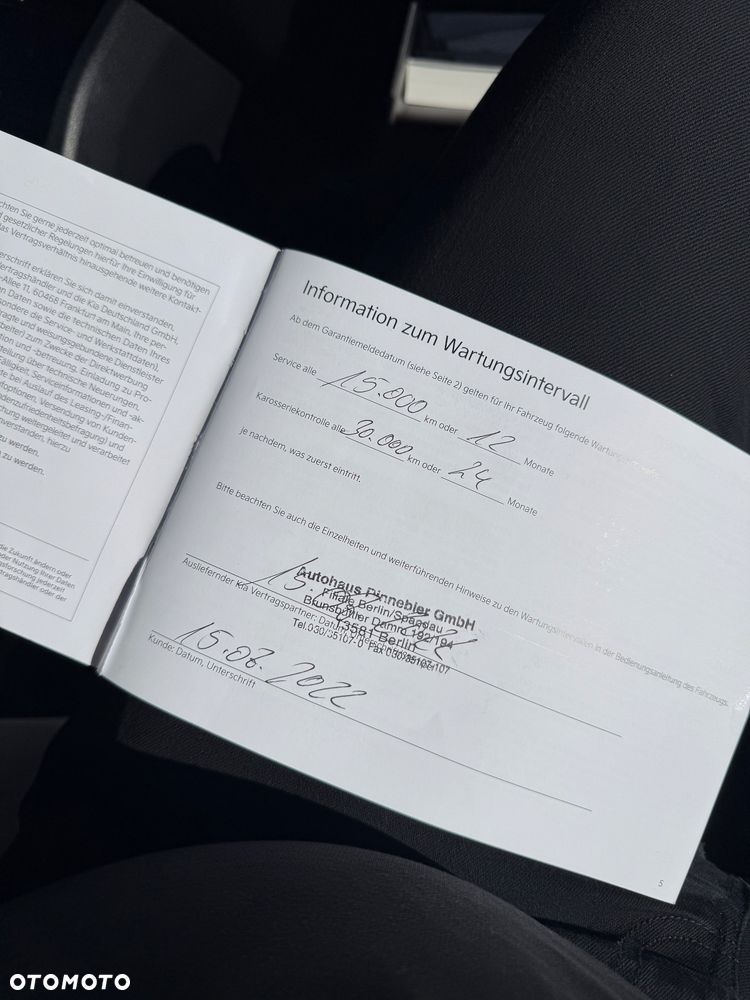 chten Sie gerne jederzeit optimal betreuen und benötigen
gesetzlicher Regelungen hierfür Ihre Einwilligung für
das Vertragsverhältnis hinausgehende weitere Kontakt-
erschrift erklären Sie sich damit einverstanden,
ertragshändler und die Kia Deutschland GmbH,
-Allee 11, 60468 Frankfurt am Main, Ihre per-
en Daten sowie die technischen Daten Ihres
sondere die Service- und Werkstattdaten),
ftragte und weisungsgebundene Dienstleister
arbeiter) zum Zwecke der Direktwerbung
tion und -betreuung, Einladung zu Pro-
tellung über technische Neuerungen,
Fälligkeit, Serviceinformationen und -ak-
te bei Auslauf des Leasing-/Finan-
ftoptionen, Versendung von Kunden-
denzufriedenheitsbefragung) und
chung weitergeleitet und verarbeitet
nverstanden, hierzu
zu werden.
zu werden.
die Zukunft ändern oder
oder Nutzung Ihrer Daten
gsforschung jederzeit
rtragshändler oder der
Information zum Wartungsintervall
Ab dem Garantiemeldedatum (siehe Seite 2) gelten für Ihr Fahrzeug folgende
Service alle 15.000 km oder 12 Monate
Karosseriekontrolle alle 30.000 km oder 24 Monate
je nachdem, was zuerst eintritt.
Bitte beachten Sie auch die Einzelheiten und weiterführenden Hinweise zu den Wartungsintervallen in der Bedienungsanleitung des Fahrzeugs.
Autohaus Pinnebier GmbH
Filiale Berlin/Spandau
Brunsbütler Damm 192/194
13581 Berlin
Tel.030/35107-0 Fax 030/35107-107
Ausliefernder Kia Vertragspartner: Datum
Kunde: Datum, Unterschrift
5
OTOMOTO